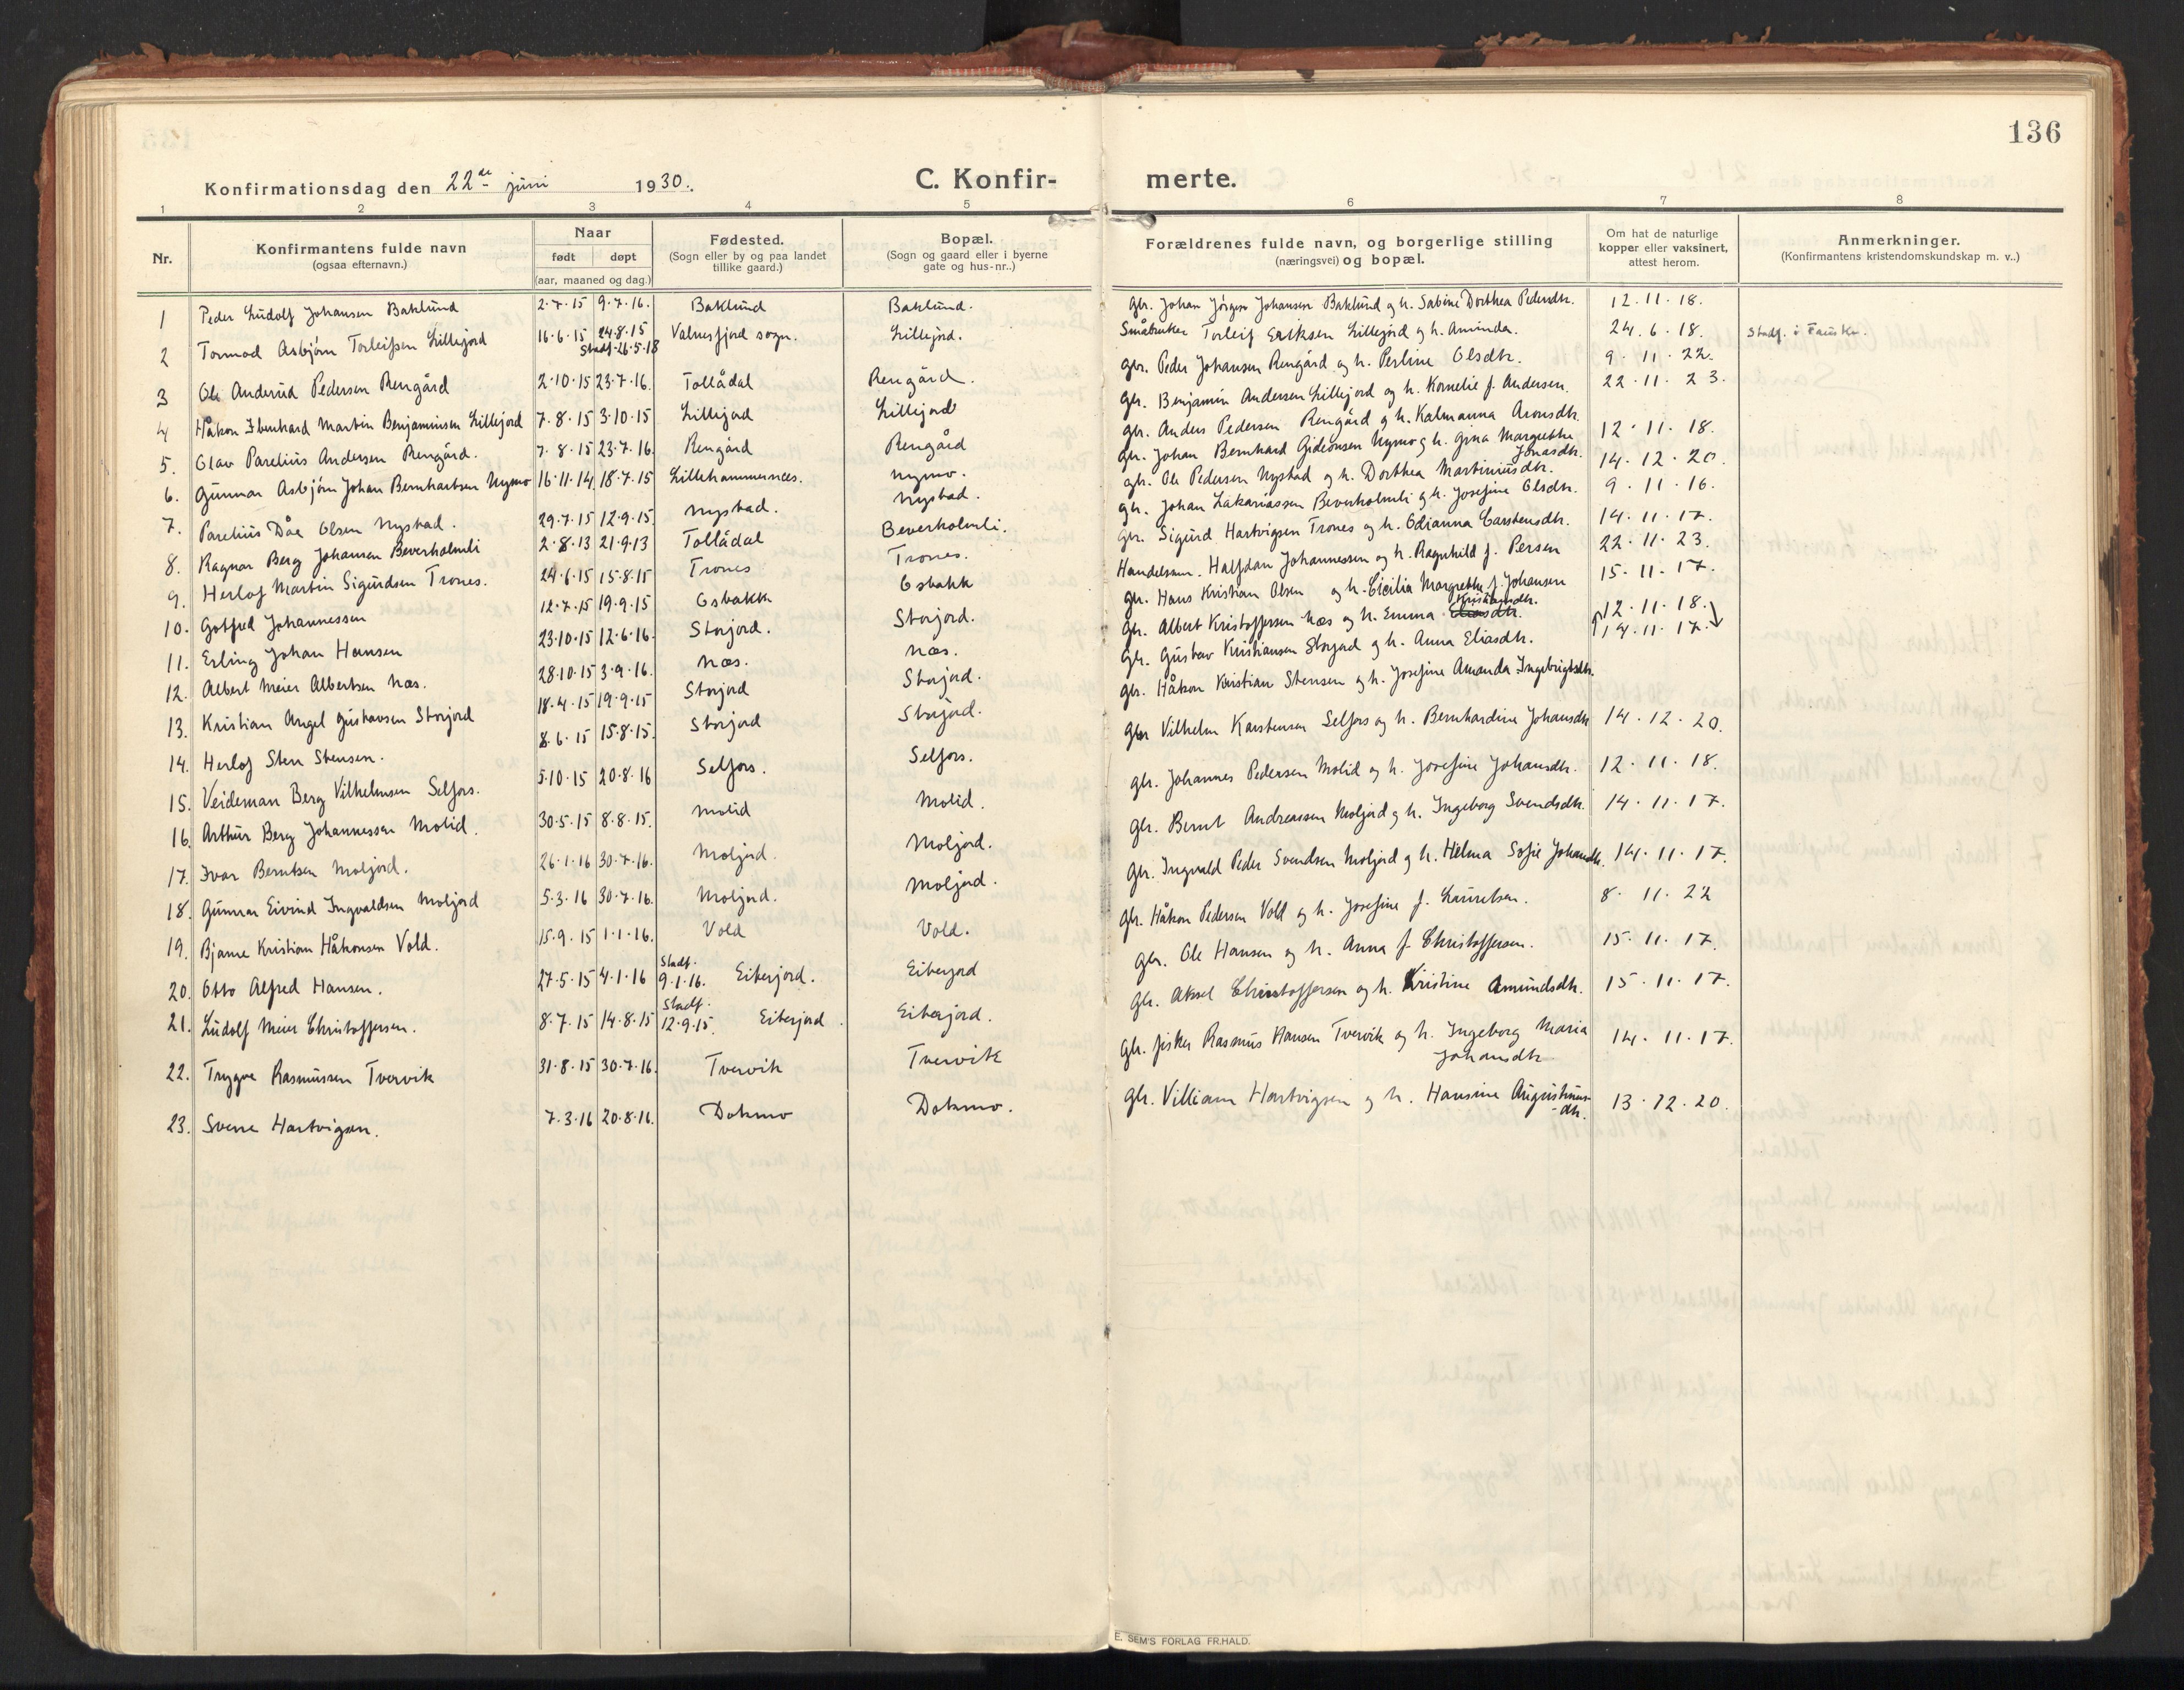 136
Konfirmationsdag den 22de juni 1930. C. Konfir- merte.
1 2 3 4 5 6 7 8
Nr. Konfirmantens fulde navn (ogsaa efternavn.) Naar født døpt (aar, maaned og dag.) Fødested. (Sogn eller by og paa landet tillike gaard.) Bopæl. (Sogn og gaard eller i byerne gate og hus-nr..) Forældrenes fulde navn, og borgerlige stilling (næringsvei) og bopæl. Om hat de naturlige kopper eller vaksinert, attest herom. Anmerkninger. (Konfirmantens kristendomskundskap m. v..)
1 Peder Ludolf Johansen Baklund 2.7.15 9.7.16. Baklund Baklund. gbr. Johan Jörgen Johansen Baklund og h. Sabine Dorthea Pedersdtr. 12.11.18.
2 Tormod Asbjörn Torleifsen Lillejord 16.6.15 24.8.15 Stadf. 26.5.18 Valnesfjord sogn. Lillejord. Småbruker Torleif Eriksen Lillejord og h. Aminda. 24.6.18. Stadf. i Fauske.
3 Ole Anderud Pedersen Rengård 2.10.15 23.7.16. Tollådal Rengård. gbr. Peder Johansen Rengård og h. Perline Olsdtr. 9.11.22.
4 Håkon Ibenhard Martin Benjaminsen Lillejord 7.8.15 3.10.15 Lillejord Lillejord gbr. Benjamin Andersen Lillejord og h. Kornelie f. Andersen. 22.11.23.
5. Olav Parelius Andersen Rengård. 7.8.15 23.7.16. Rengård Rengård gbr. Anders Pedersen Rengård og h. Kalmanna Aronsdtr. 12.11.18.
6. Gunnar Asbjörn Johan Bernhartsen Nymo 16.11.14 18.7.15 Lillehammernæs. Nymo. gbr. Johan Bernhard Gideonsen Nymo og h. Gina Margrethe Jonasdtr. 14.12.20.
7. Parelius Dåe Olsen Nystad. 29.7.15 12.9.15. Nystad. Nystad. gbr. Ole Pedersen Nystad og h. Dorthea Martiniusdtr. 9.11.16.
8. Ragnar Berg Johansen Beverholmli 2.8.13 21.9.13 Tollådal Beverholmli. gbr. Johan Zakariassen Beverholmli og h. Josefine Olsdtr. 14.11.17.
9. Herlof Martin Sigurdsen Trones. 24.6.15 15.8.15 Trones Trones. gbr. Sigurd Hartvigsen Trones og h. Odianna Carstensdtr. 22.11.23.
10. Gotfred Johannessen 12.7.15 19.9.15 Osbakk Osbakk Handelsm. Halfdan Johannessen og h. Ragnhild f. Persen 15.11.17.
11. Erling Johan Hansen 23.10.15 12.6.16. Storjord. Storjord. gbr. Hans Kristian Olsen og h. Cecilia Margrethe f. Johansen 12.11.18.
12. Albert Meier Albertsen Næs. 28.10.15 3.9.16. Næs. Næs. gbr. Albert Kristoffersen Næs og h. Emma Eliasdtr. Kristiansdtr. 14.11.17.
13. Kristian Angel Gustavsen Storjord 18.4.15 19.9.15 Storjord Storjord. gbr. Gustav Kristiansen Storjord og h. Anna Eliasdtr.
14. Herlof Sten Stensen. 8.6.15 15.8.15. Storjord Storjord. gbr. Håkon Kristian Stensen og h. Josefine Amanda Ingebrigtsdtr.
15. Veideman Berg Vilhelmsen Selfors. 5.10.15 20.8.16 Selfors. Selfors. gbr Vilhelm Karstensen Selfors og h. Bernhardine Johansdtr 14.12.20.
16. Arthur Berg Johannessen Molid. 30.5.15 8.8.15. Molid Molid. gbr. Johannes Pedersen Molid og h. Josefine Johansdtr. 12.11.18.
17. Ivar Berntsen Moljord. 26.1.16 30.7.16. Moljord. Moljord. gbr. Bernt Andreassen Moljord og h. Ingeborg Svendsdtr. 14.11.17.
18. Gunnar Eivind Ingvaldsen Moljord 5.3.16 30.7.16. Moljord. Moljord. gbr. Ingvald Peder Svendsen Moljord og h. Helma Sofie Johansdtr. 14.11.17.
19. Bjarne Kristian Håkonsen Vold. 15.9.15 1.1.16. Vold Vold. gbr. Håkon Pedersen Vold og h. Josefine f. Lauritsen. 8.11.22
20. Otto Alfred Hansen. 27.5.15 4.1.16 Stadf. 9.1.16. Eiterjord. Eiterjord gbr. Ole Hansen og h. Anna f. Christoffersen. 15.11.17.
21. Ludolf Meier Christoffersen. 8.7.15 14.8.15 Stadf. 12.9.15. Eiterjord. Eiterjord. gbr. Aksel Christoffersen og h. Kristine Amundsdtr. 15.11.17.
22. Trygve Rasmussen Tvervik 31.8.15 30.7.16. Tvervik Tvervik gbr. fisker Rasmus Hansen Tvervik og h. Ingeborg Maria Johansdtr 14.11.17.
23. Sverre Hartvigsen. 7.3.16 20.8.16. Dokmo Dokmo. gbr. Villiam Hartvigsen og h. Hansine Augustinus-dtr. 13.12.20.
E. SEM'S FORLAG FR.HALD.